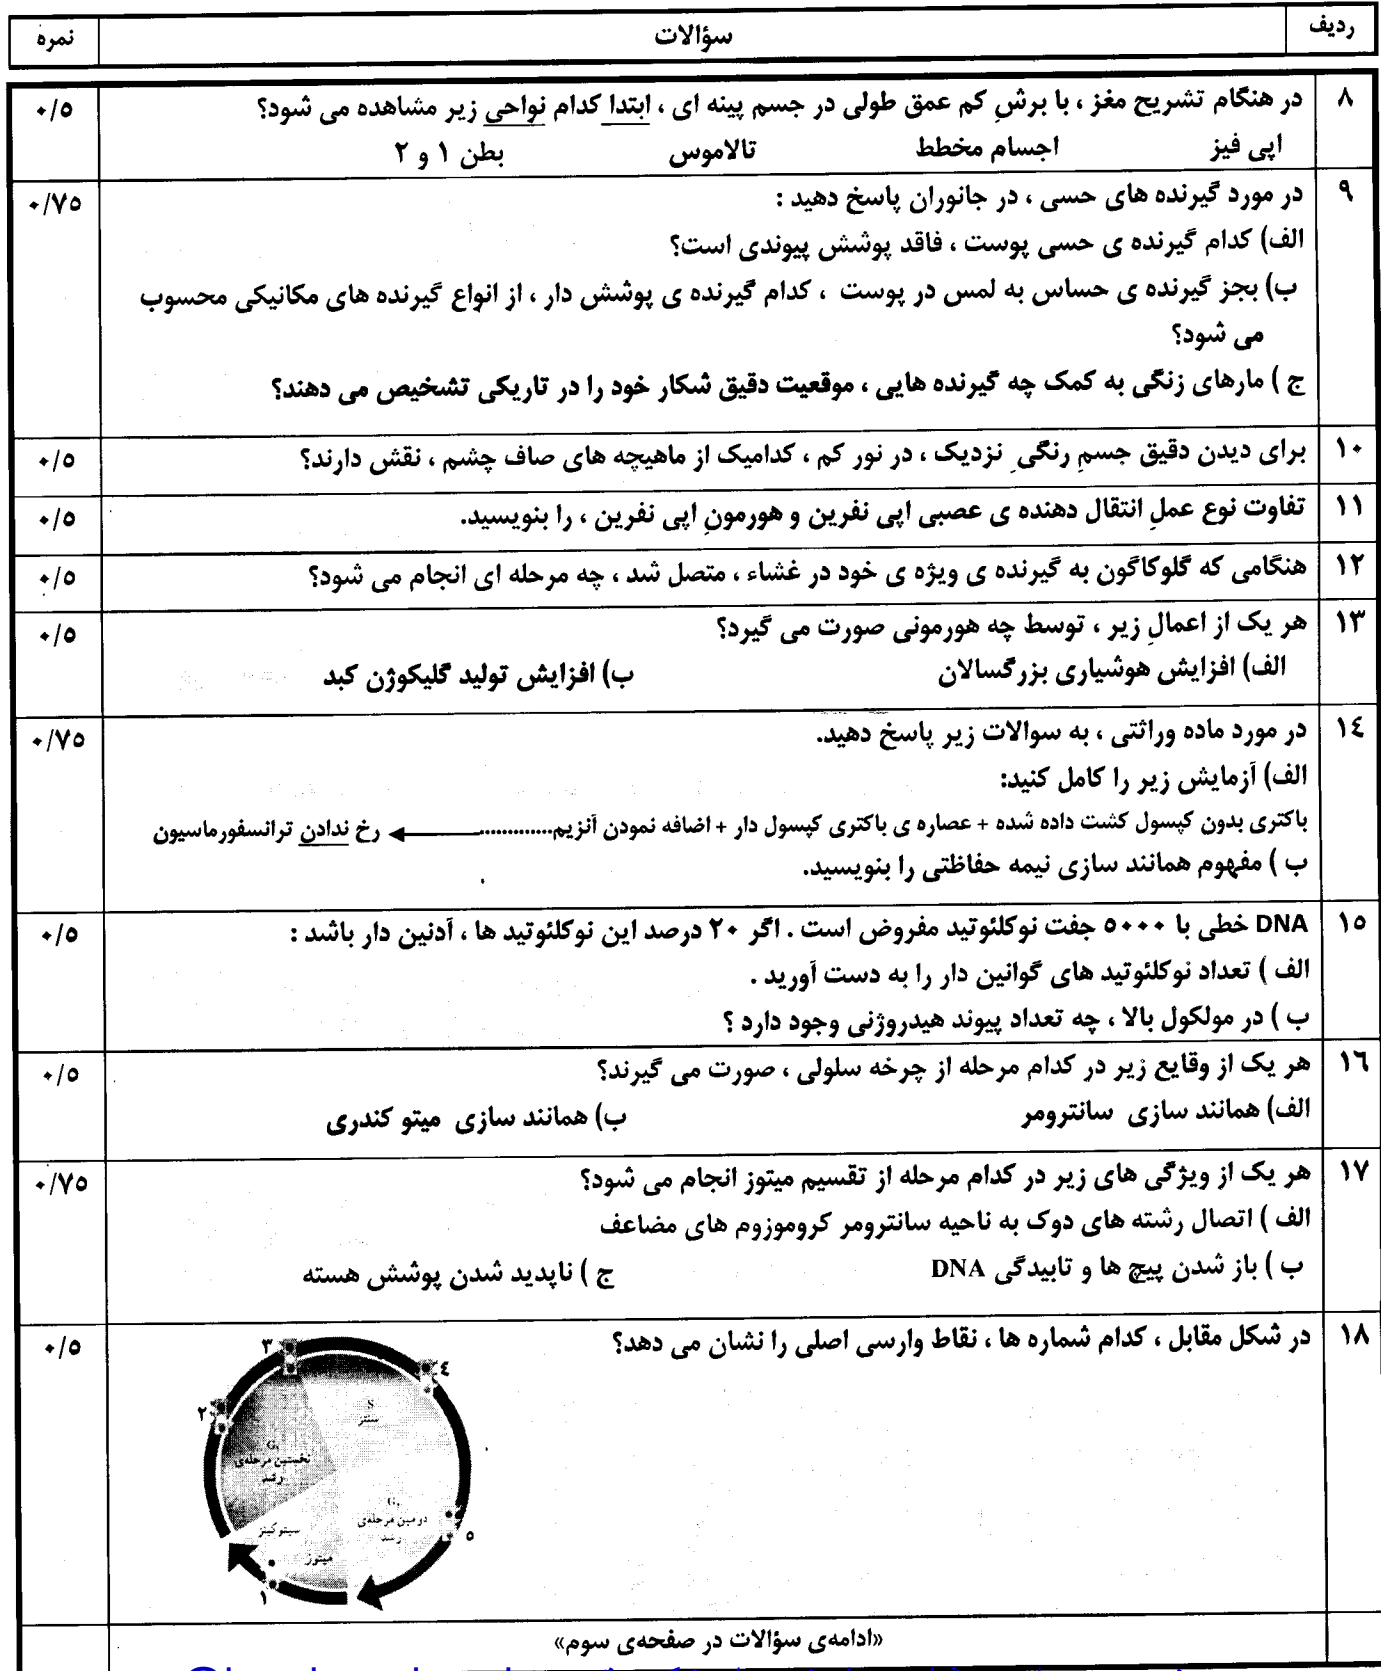 ردیف سؤالات نمره
۸ در هنگام تشریح مغز ، با برشِ کم عمق طولی در جسم پینه ای ، ابتدا کدام نواحی زیر مشاهده می شود؟ ۰/۵
اپی فیز اجسام مخطط تالاموس بطن ۱ و ۲
۹ در مورد گیرنده های حسی ، در جانوران پاسخ دهید : ۰/۷۵
الف) کدام گیرنده ی حسی پوست ، فاقد پوشش پیوندی است؟
ب) بجز گیرنده ی حساس به لمس در پوست ، کدام گیرنده ی پوشش دار ، از انواع گیرنده های مکانیکی محسوب
می شود؟
ج ) مارهای زنگی به کمک چه گیرنده هایی ، موقعیت دقیق شکار خود را در تاریکی تشخیص می دهند؟
۱۰ برای دیدن دقیق جسمِ رنگیِ نزدیک ، در نور کم ، کدامیک از ماهیچه های صاف چشم ، نقش دارند؟ ۰/۵
۱۱ تفاوت نوع عملِ انتقال دهنده ی عصبی اپی نفرین و هورمونِ اپی نفرین ، را بنویسید. ۰/۵
۱۲ هنگامی که گلوکاگون به گیرنده ی ویژه ی خود در غشاء ، متصل شد ، چه مرحله ای انجام می شود؟ ۰/۵
۱۳ هر یک از اعمالِ زیر ، توسط چه هورمونی صورت می گیرد؟ ۰/۵
الف) افزایش هوشیاری بزرگسالان ب) افزایش تولید گلیکوژن کبد
۱٤ در مورد ماده وراثتی ، به سوالات زیر پاسخ دهید. ۰/۷۵
الف) آزمایش زیر را کامل کنید:
باکتری بدون کپسول کشت داده شده + عصاره ی باکتری کپسول دار + اضافه نمودن آنزیم............. رخ ندادن ترانسفورماسیون
ب ) مفهوم همانند سازی نیمه حفاظتی را بنویسید.
۱۵ DNA خطی با ۵۰۰۰ جفت نوکلئوتید مفروض است . اگر ۲۰ درصد این نوکلئوتید ها ، آدنین دار باشد : ۰/۵
الف ) تعداد نوکلئوتید های گوانین دار را به دست آورید .
ب ) در مولکول بالا ، چه تعداد پیوند هیدروژنی وجود دارد ؟
۱٦ هر یک از وقایع زیر در کدام مرحله از چرخه سلولی ، صورت می گیرند؟ ۰/۵
الف) همانند سازی سانترومر ب) همانند سازی میتو کندری
۱۷ هر یک از ویژگی های زیر در کدام مرحله از تقسیم میتوز انجام می شود؟ ۰/۷۵
الف ) اتصال رشته های دوک به ناحیه سانترومر کروموزوم های مضاعف
ب ) باز شدن پیچ ها و تابیدگی DNA ج ) ناپدید شدن پوشش هسته
۱۸ در شکل مقابل ، کدام شماره ها ، نقاط وارسی اصلی را نشان می دهد؟ ۰/۵
۳
٤
۲
S
سنتز
G₁
نخستین مرحله‌ی
رشد
G₂
دومین مرحله‌ی
رشد
۵
سیتوکینز
میتوز
۱
«ادامه‌ی سؤالات در صفحه‌ی سوم»